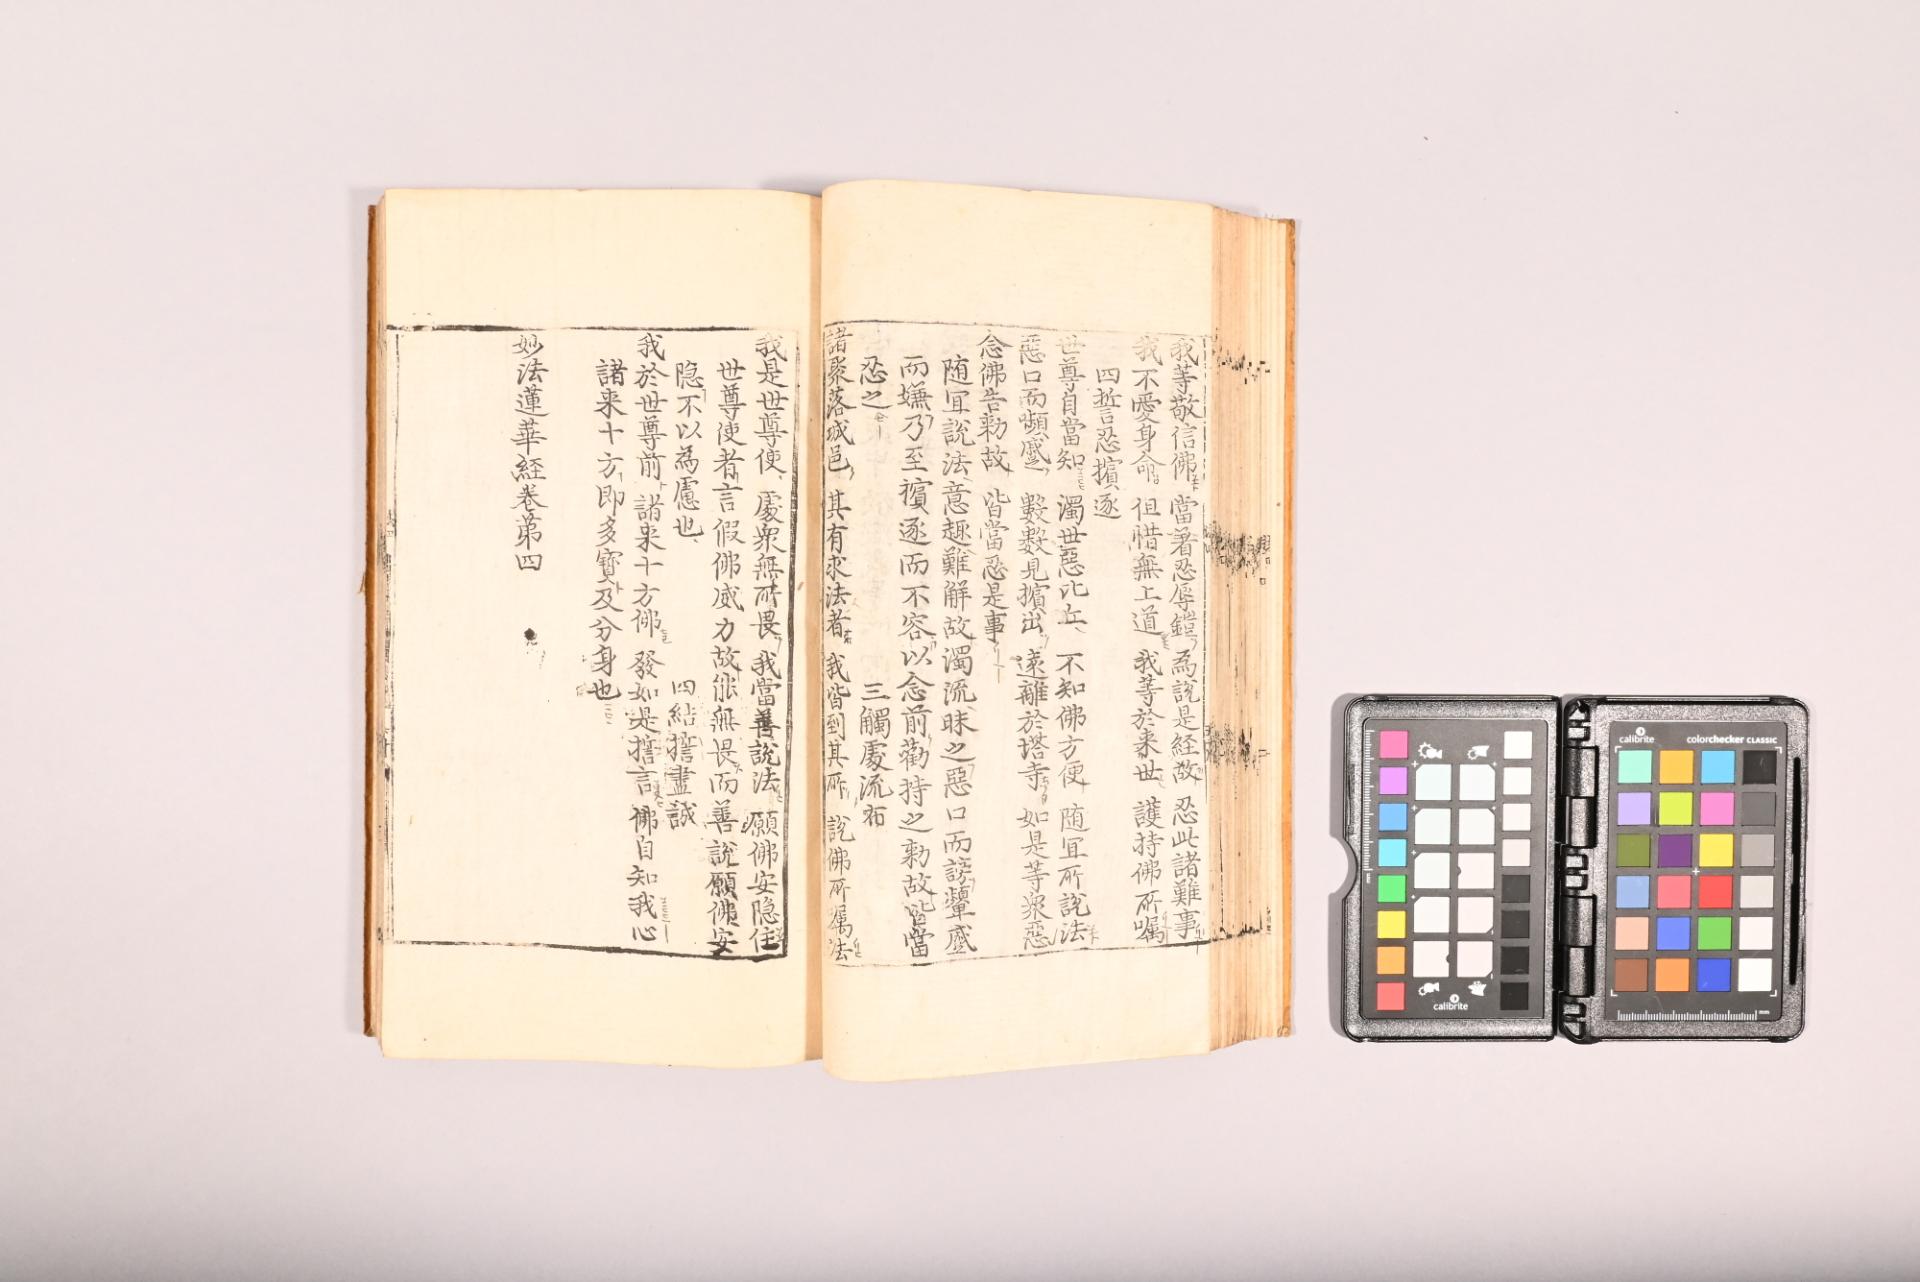 我等敬信佛 當著忍辱鎧 為說是経故 忍此諸難事
我不愛身命 但惜無上道 我等於来世 護持佛所囑
四誓忍擯逐
世尊自當知 濁世惡比丘 不知佛方便 随宜所說法
惡口而嚬蹙 數數見擯出 遠離於塔寺 如是等衆惡
念佛告勅故 皆當忍是事
随宜說法意趣難解故濁流昧之惡口而謗顰蹙
而嫌乃至擯逐而不容以念前勸持之勅故皆當
忍之 三觸處流布
諸聚落城邑 其有求法者 我皆到其所 說佛所囑法
我是世尊使 處衆無所畏 我當善說法 願佛安隐住
世尊使者言假佛威力故能無畏而善說願佛安
隐不以為慮也 四結誓盡誠
我於世尊前 諸来十方佛 發如是誓言 佛自知我心
諸来十方即多寶及分身也
妙法蓮華経卷第四
calibrite
colorchecker CLASSIC
mm
calibrite